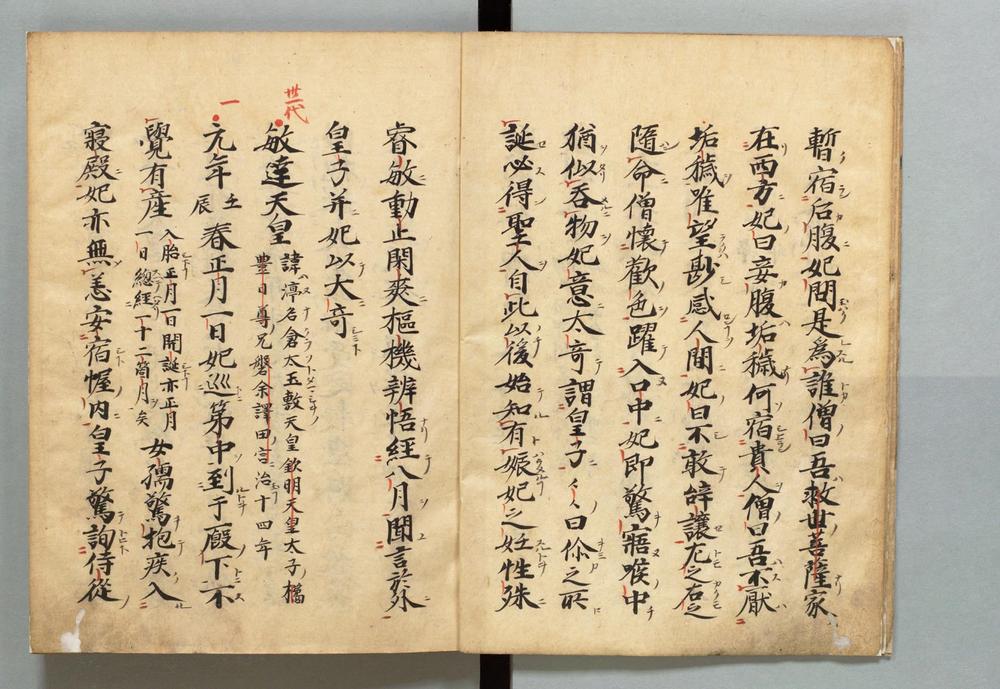 暫宿后腹妃問是爲誰僧曰吾救世菩薩家
在西方妃曰妾腹垢穢何宿貴人僧曰吾不厭
垢穢唯望尠感人間妃曰不敢辞讓左之右之
隨命僧懷歡色躍入口中妃即驚寤喉中
猶似吞物妃意太奇謂皇子々曰你之所
誕必得聖人自此以後始知有娠妃之妊性殊
睿敏動止閑爽樞機辨悟經八月聞言於外
皇子并妃以大奇
卅一代
敏達天皇
諱渟名倉太玉敷天皇欽明天皇太子檑
豊日尊兄盤余譯田宮治十四年
一
元年壬辰春正月一日妃巡第中到于廐下不
覺有産
入胎正月一日開誕亦正月
一日總經一十二箇月矣
女孺驚抱疾入
寝殿妃亦無恙安宿幄内皇子驚詢侍從